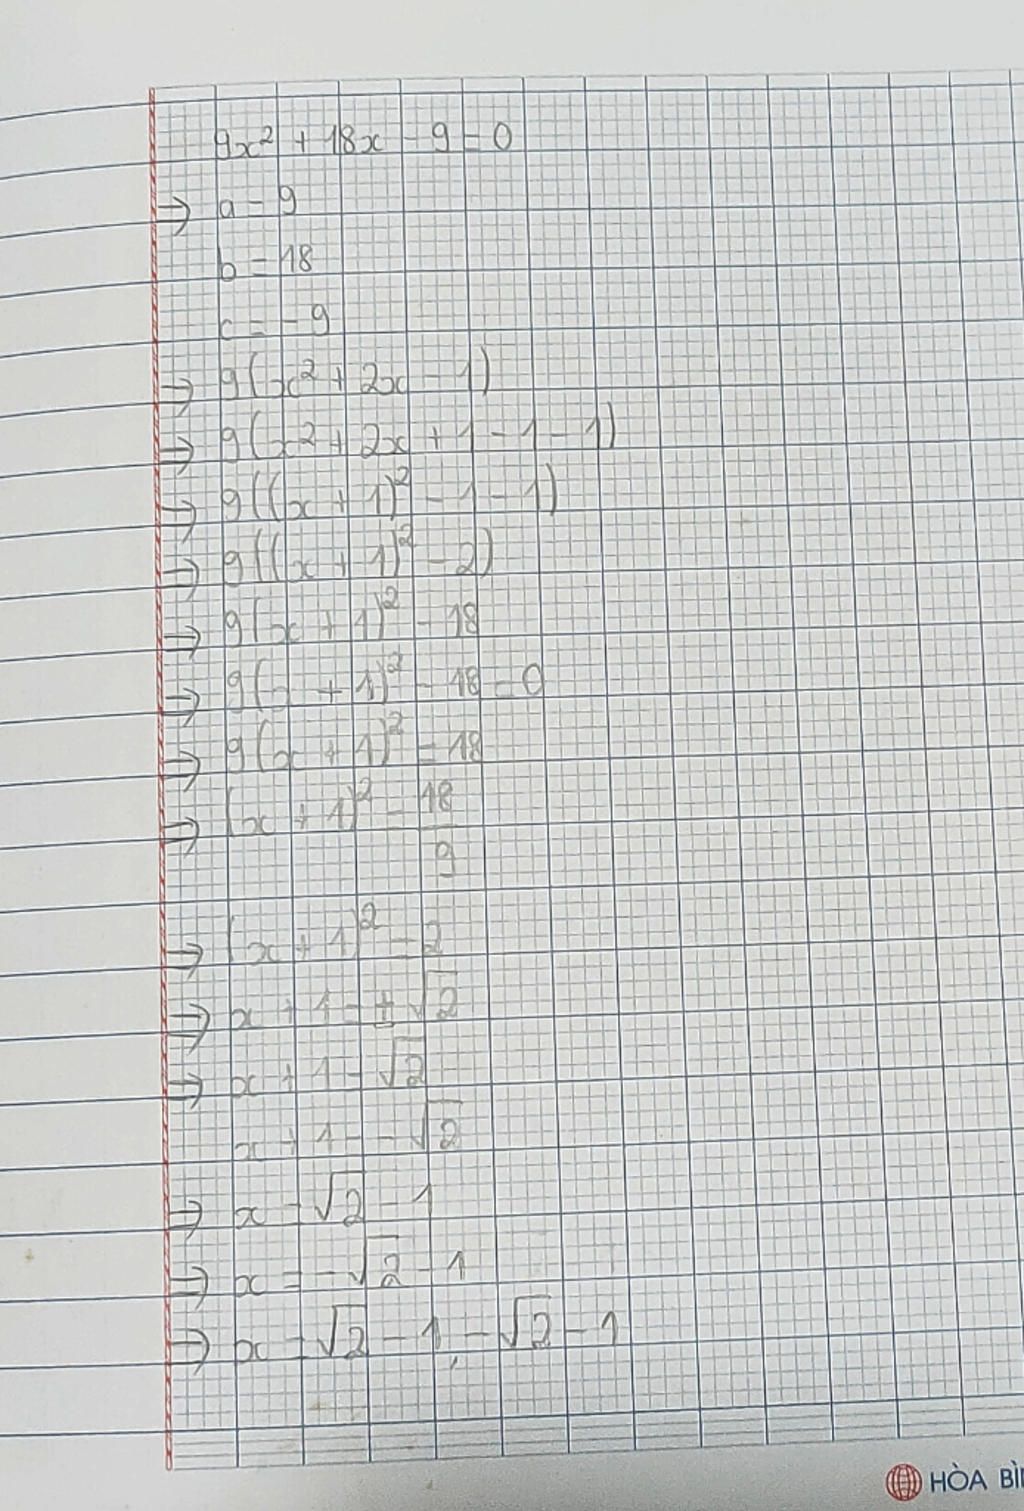 9x² + 18x - 9 = 0
⇒ a = 9
b = 18
c = -9
⇒ 9(x² + 2x - 1)
⇒ 9(x² + 2x + 1 - 1 - 1)
⇒ 9((x + 1)² - 1 - 1)
⇒ 9((x + 1)² - 2)
⇒ 9(x + 1)² - 18
⇒ 9(x + 1)² - 18 = 0
⇒ 9(x + 1)² = 18
⇒ (x + 1)² = 18/9
⇒ (x + 1)² = 2
⇒ x + 1 = ±√2
⇒ x + 1 = √2
x + 1 = -√2
⇒ x = √2 - 1
⇒ x = -√2 - 1
⇒ x = √2 - 1, -√2 - 1
HÒA BÌ